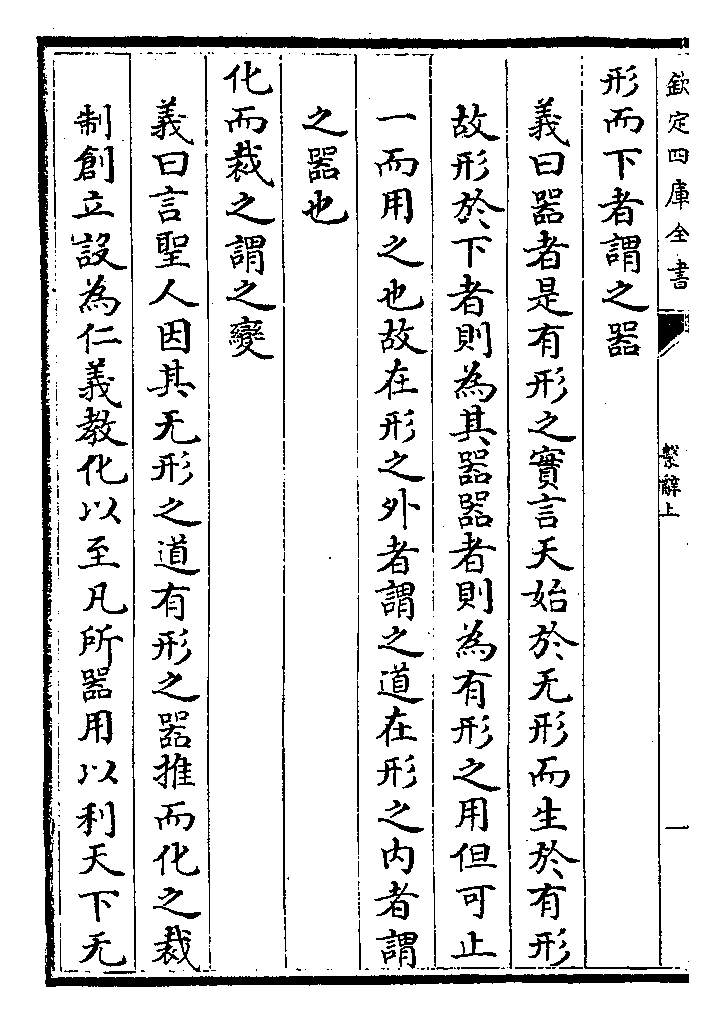 欽定四庫全書
繫辭上
一
形而下者謂之器
義曰器者是有形之實言天始於无形而生於有形
故形於下者則為其器器者則為有形之用但可止
一而用之也故在形之外者謂之道在形之内者謂
之器也
化而裁之謂之變
義曰言聖人因其无形之道有形之器推而化之裁
制創立設為仁義教化以至凡所器用以利天下无